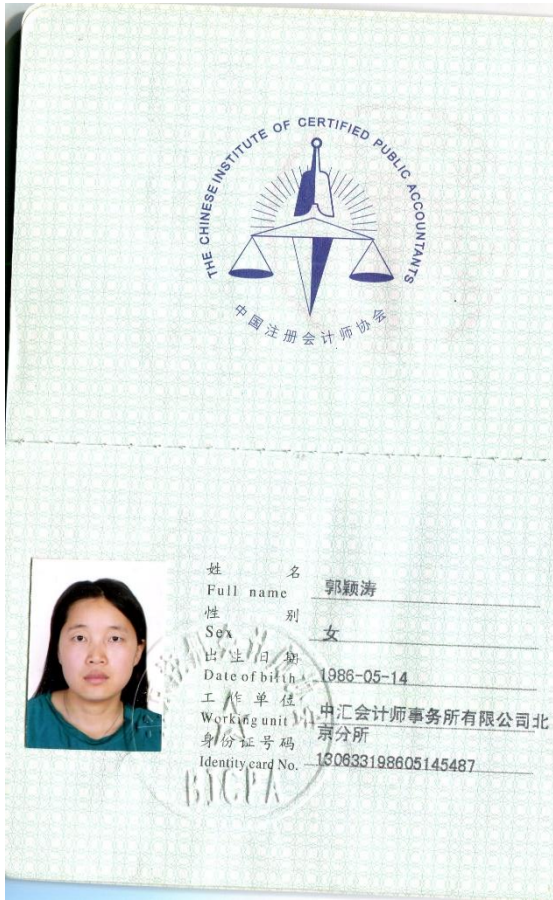 THE CHINESE INSTITUTE OF CERTIFIED PUBLIC ACCOUNTANTS
中国注册会计师协会
姓 名
Full name
郭颖涛
性 别
Sex
女
出生日期
Date of birth
1986-05-14
工作单位
Working unit
中汇会计师事务所有限公司北
京分所
身份证号码
Identity card No.
130633198605145487
BICPA